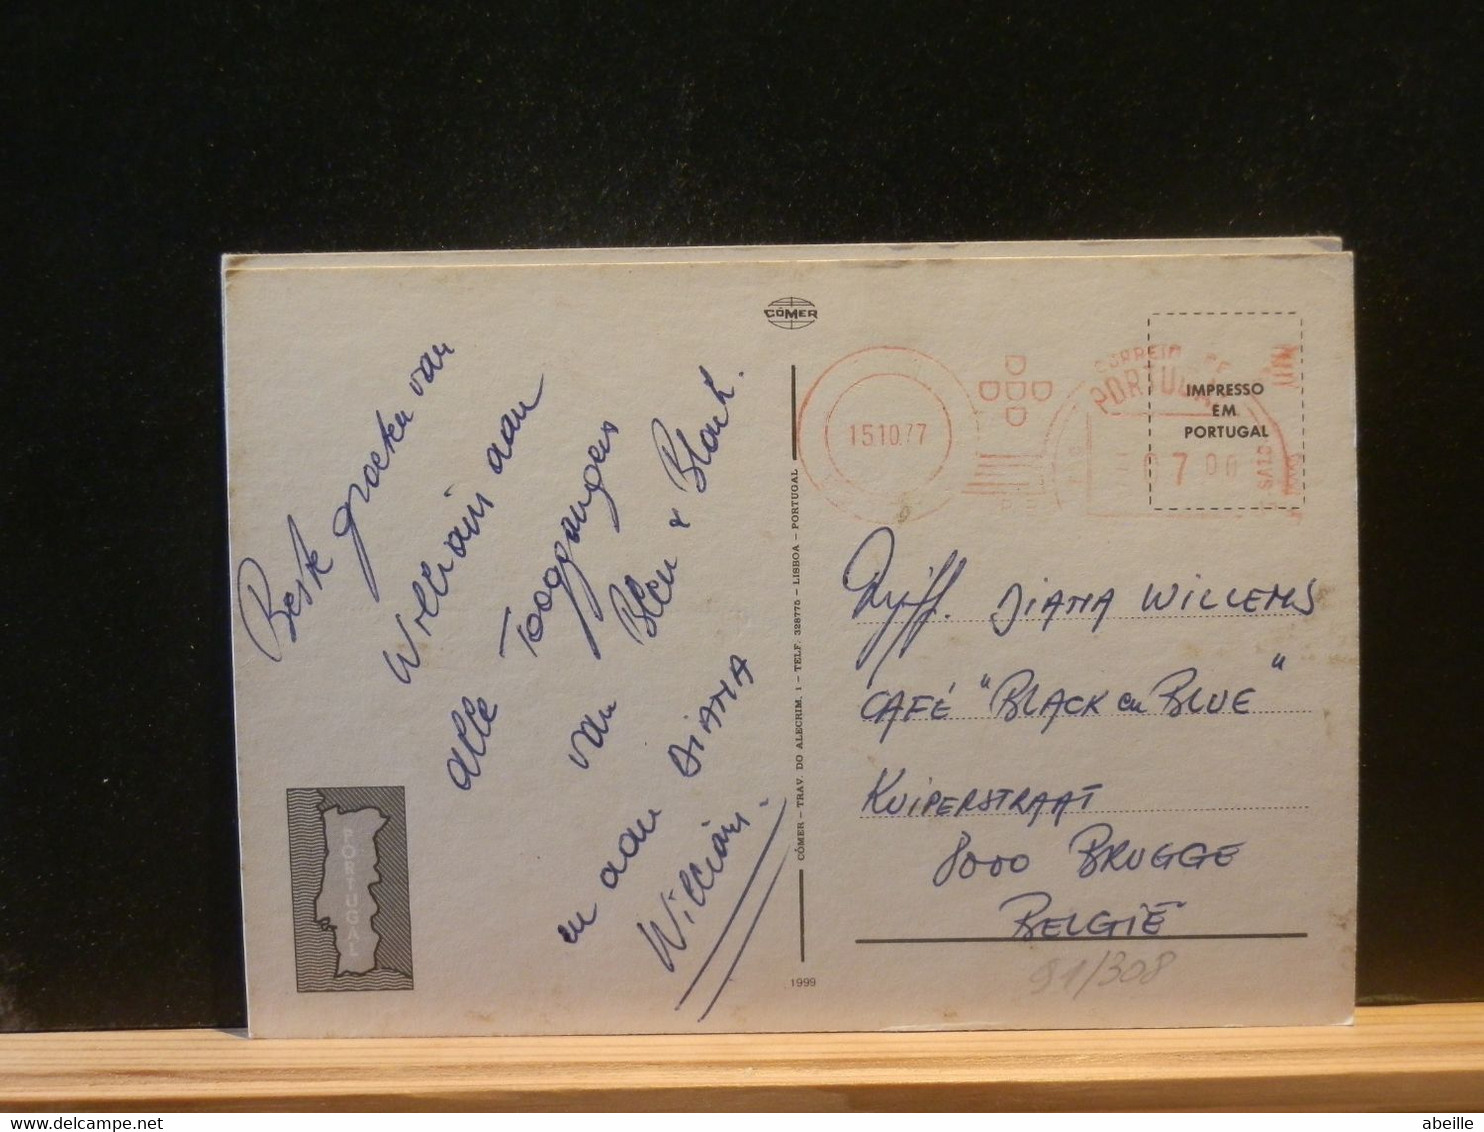 CÓMER
Beste groeten van
William aan
alle Tooggangers
van Bleu & Black.
en aan DIANA
William.
PORTUGAL
CÓMER – TRAV. DO ALECRIM, 1 – TELF. 328775 – LISBOA – PORTUGAL
1999
15.10.77
CORREIO DE
PORTUGAL
07 00
IMPRESSO
EM
PORTUGAL
Juff. DIANA WILLEMS
CAFÉ "BLACK en BLUE"
KUIPERSTRAAT
8000 BRUGGE
BELGIË
91/308
abeille